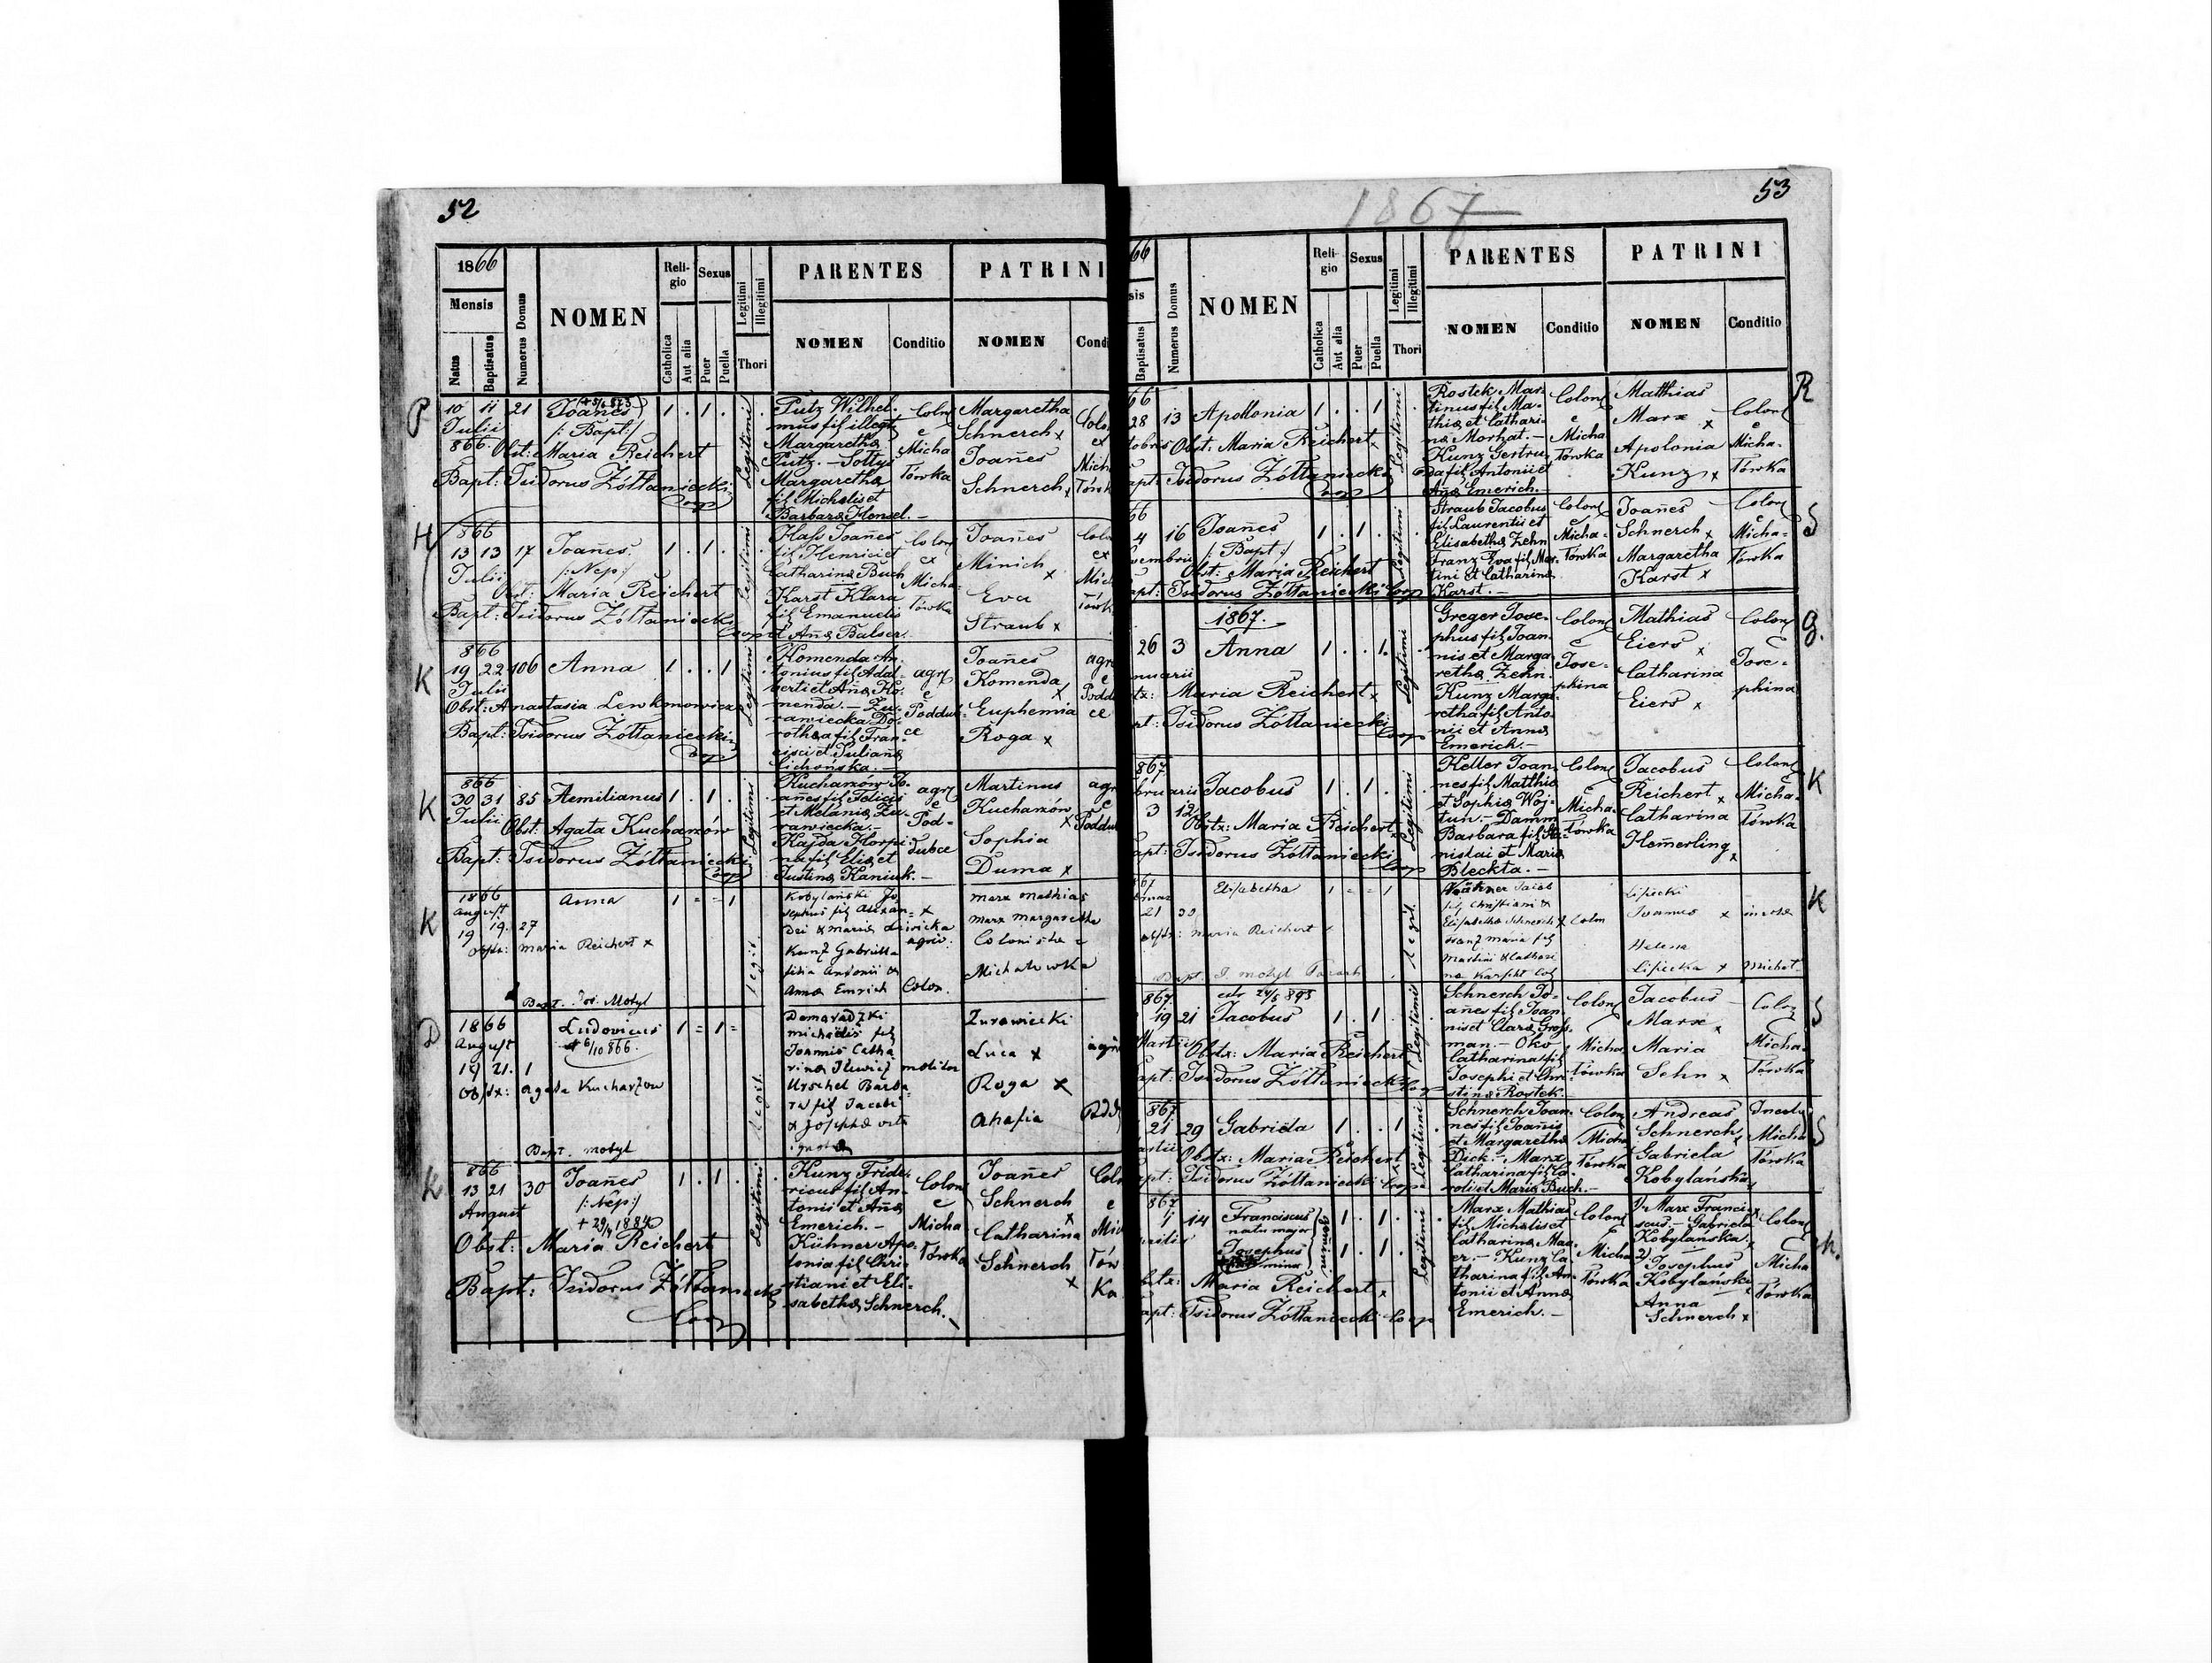 52
1866
Mensis
Natus
Baptisatus
Numerus Domus
NOMEN
Reli-
gio
Catholica
Aut alia
Sexus
Puer
Puella
Legitimi
Illegitimi
Thori
PARENTES
NOMEN
Conditio
PATRINI
NOMEN
Condi
P
10 11 21 Joañes 1 . 1 .
Julii /: Bapt :/
866. Obst: Maria Reichert
Bapt: Isidorus Żółtaniecki
Coop
Legitimi
Putz Wilhel-
mus fil illegt
Margaretha
Putz. — Soltys
Margaretha
fil Michaelis et
Barbara Hensel. —
Colon
e
Micha
łówka
Margaretha
Schnerch x
Joañes
Schnerch x
Colon
ex
Mich
łówk
H
866
13 13 17 Joañes 1 . 1 .
Julii /: Nep :/
Obst: Maria Reichert
Bapt: Isidorus Żółtaniecki
Coop
Legitimi
Hass Joañes
fil Henrici et
Catharina Buch
Karst Klara
fil Emanuelis
et Anna Balser.
Colon
ex
Micha
łówka
Joañes
Minich
x
Eva
Straub x
Colo
ex
Mich
łówk
K
866
19 22 106 Anna 1 . . 1
Julii
Obst: Anastasia Lewkonowicz
Bapt: Isidorus Żółtaniecki
Coop
Legitimi
Komenda An-
tonius fil Adal-
berti et Anna Ko-
menda. — Żu-
rawiecka Do-
rothea fil Fran-
cisci et Juliana
Cichońska. —
agr
e
Poddub-
ce
Joañes
Komenda
x
Euphemia
Roga x
agr
e
Poddu
ce
K
866
30 31 85 Aemilianus 1 . 1 .
Julii
Obst: Agata Kucharzów
Bapt: Isidorus Żółtaniecki
Coop
Legitimi
Kucharzów Jo-
añes fil Felicis
et Melania Żu-
rawiecka. —
Kajda Horpi-
na fil Elia et
Justina Kaniuk. —
agr
e
Pod-
dubce
Martinus
Kucharzów
x
Sophia
Duma x
agr
e
Poddu
K
1866
August
19 19. 27
Anna 1 = = 1
obstx: Maria Reichert x
Bapt. Jos. Motyl
Legit.
Kobylański Jo
sephus fil Alexan-
dri & Maria Lewicka
Kunz Gabriella
filia Antonii &
Anna Emrich
agric.
Colon.
Marx Mathias
Marx Margaretha
Colonista e
Michałówka
D
1866
August
19 21. 1
Ludovicus 1 = 1 =
+ 6/10 866.
Obstx: Agata Kucharzow
Bapt. Motyl
Legit.
Domaradzki
Michaelis fil
Joannis Catha
rina Ilewicz
Urschel Barba
ra fil Jacobi
& Josepha
molitor
Żurawiecki
Luca x
Roga x
Ahafia
agri
K
866
13 21 30 Joañes 1 . 1 .
August /: Nep :/
+ 29/4 1884
Obst: Maria Reichert
Bapt: Isidorus Żółtaniecki
Coop
Legitimi
Kunz Fride-
ricus fil An-
tonii et Anna
Emerich. —
Kühner Apo-
lonia fil Chri-
stiani et Eli-
sabetha Schnerch. —
Colon
e
Micha
łówka
Joañes
Schnerch
x
Catharina
Schnerch
x
Colo
e
Mic
łów
ka
53
1867
66
sis
Baptisatus
Numerus Domus
NOMEN
Reli-
gio
Catholica
Aut alia
Sexus
Puer
Puella
Legitimi
Illegitimi
Thori
PARENTES
NOMEN
Conditio
PATRINI
NOMEN
Conditio
R
66
28 13 Apollonia 1 . . 1
tobris Obst. Maria Reichert x
apt: Isidorus Żółtaniecki
Coop
Legitimi
Rostek Mar-
tinus fil Ma-
thia et Cathari-
na Morhat. —
Kunz Gertru-
da fil Antonii et
Anna Emerich.
Colon
e
Micha
łówka
Matthias
Marx
x
Apolonia
Kunz x
Colon
e
Micha-
łówka
S
66
4 16 Joañes 1 . 1 .
vembris /: Bapt :/
Obst: Maria Reichert
apt: Isidorus Żółtaniecki Coop
Legitimi
Straub Jacobus
fil Laurentii et
Elisabetha Zehn
Franz Eva fil Mar-
tini et Catharina
Karst. —
Colon
e
Micha-
łówka
Joañes
Schnerch x
Margaretha
Karst x
Colon
e
Micha-
łówka
1867.
G.
26 3 Anna 1 . . 1.
nuarii
tx: Maria Reichert x
pt: Isidorus Żółtaniecki
Coop
Legitimi
Greger Jose-
phus fil Joan-
nis et Marga-
retha Zehn.
Kunz Marga-
retha fil Anto-
nii et Anna
Emerich. —
Colon
e
Jose-
phina
Mathias
Eiers x
Catharina
Eiers x
Colon
e
Jose-
phina
K
867
bruarii Jacobus 1 . 1 .
3 12
Obstx: Maria Reichert x
apt: Isidorus Żółtaniecki
Coop
Legitimi
Keller Joan-
nes fil Matthia
et Sophia Woj-
tun. — Damm
Barbara fil Sta-
nislai et Maria
Bleckta. —
Colon
e
Micha-
łówka
Jacobus
Reichert x
Catharina
Hemerling
x
Colon
e
Micha-
łówka
K
67
21 30
Elisabetha 1 = = 1
obstx: Maria Reichert x
Bapt. J. Motyl Paroch
Legit.
Kühner Jacob
fil Christiani &
Elisabetha Schnerch
Franz Maria fil
Martini & Cathari
na Karst
Colon
Lipecki
Joannes x
Helena
Lipecka x
Michał.
S
867
19 21 Jacobus 1 . 1 .
Martii
Obstx: Maria Reichert
apt: Isidorus Żółtaniecki Coop
Legitimi
Schnerch Jo-
añes fil Joan-
nis et Clara Gross-
man. — Oko
Catharina fil
Josephi et Chri-
stina Rostek.
Colon
e
Micha
łówka
Jacobus
Marx x
Maria
Sehn x
Colon
e
Micha
łówka
S
867
21 29 Gabriela 1 . . 1
artii
Obstx: Maria Reichert
apt: Isidorus Żółtaniecki Coop
Legitimi
Schnerch Joan-
nes fil Joañis
et Margaretha
Dick. — Marx
Catharina fil Ca-
roli et Maria Buch. —
Colon
e
Micha
łówka
Andreas
Schnerch x
Gabriela
Kobylańska x
Micha
łówka
M.
867
1 14 Franciscus 1 . 1 .
natu major
prilis Josephus 1 . 1 .
Gemini
btx: Maria Reichert x
apt: Isidorus Żółtaniecki Coop
Legitimi
Marx Mathias
fil Michaelis et
Catharina Mau-
er. — Kunz Ca-
tharina fil An-
tonii et Anna
Emerich. —
Colon
e
Micha
łówka
1/ Marx Franci-
scus. — Gabriela
Kobylańska x
2) Josephus
Kobylański x
Anna
Schnerch x
Colon
e
Micha
łówka